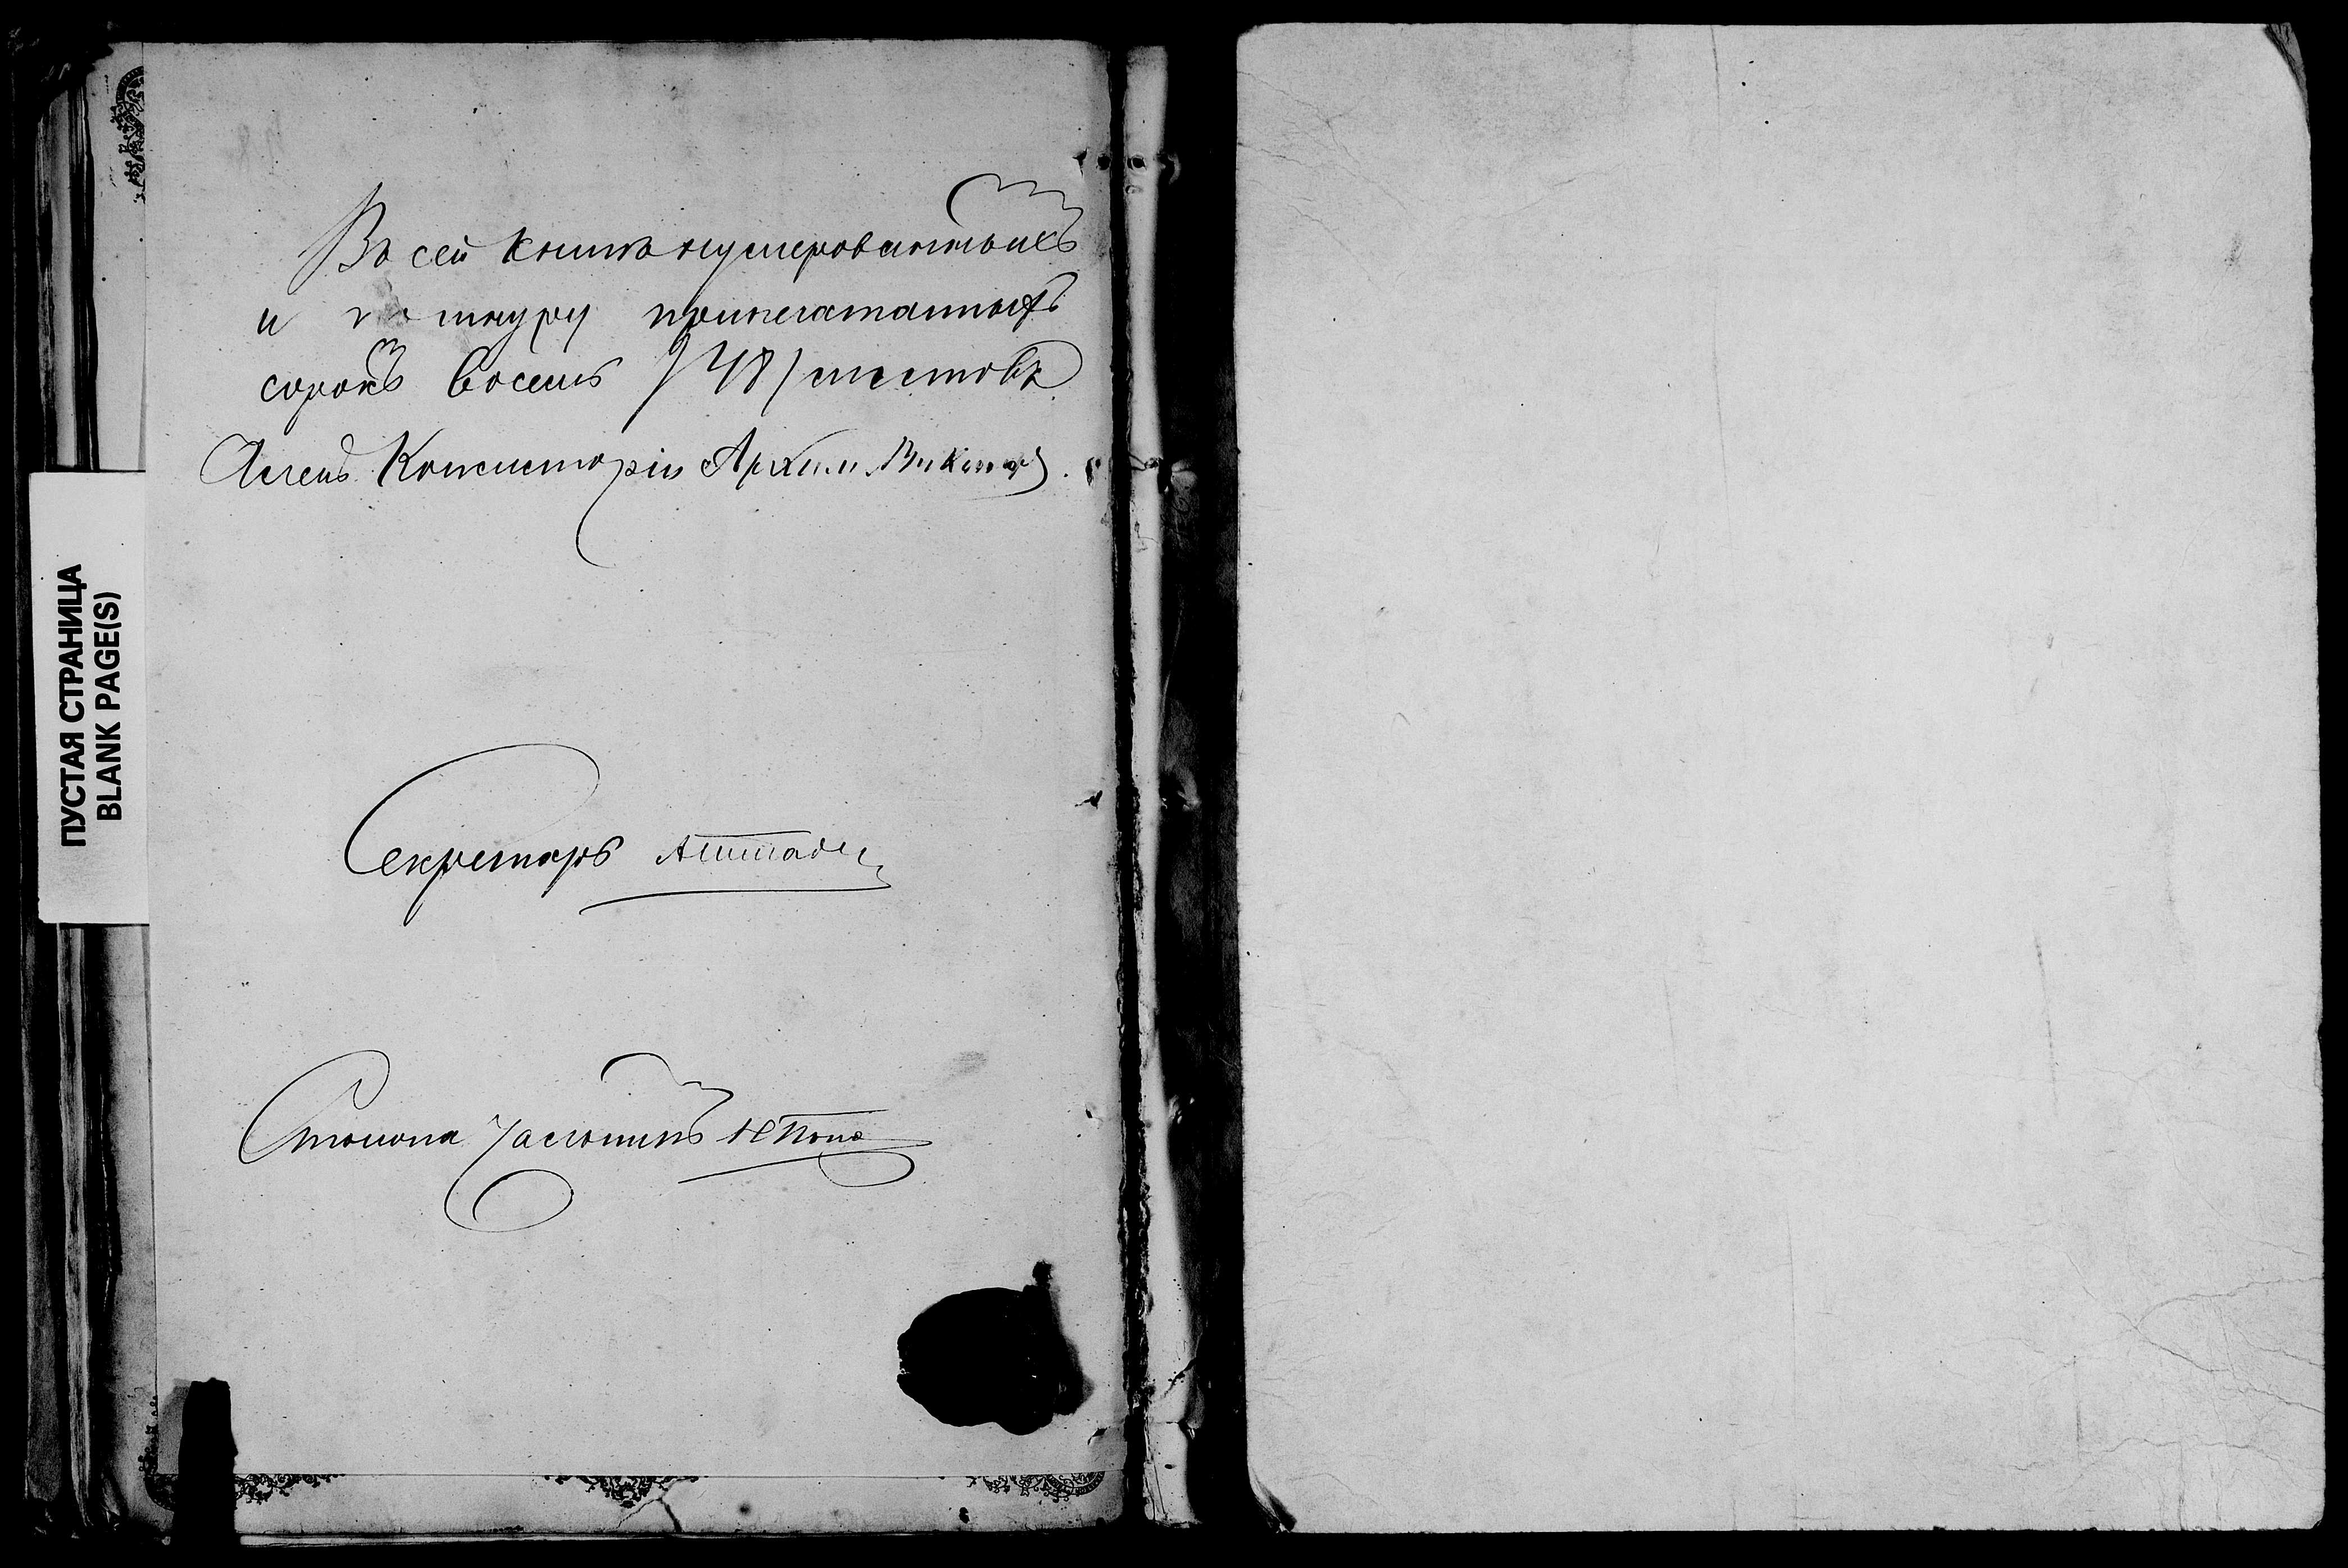 Въ сей книгѣ нумерованныхъ
и по шнуру припечатанныхъ
сорокъ восемь /48/ листовъ
Членъ Консисторіи Архим. Викторъ.
Секретарь
Столоначальникъ
ПУСТАЯ СТРАНИЦА
BLANK PAGE(S)